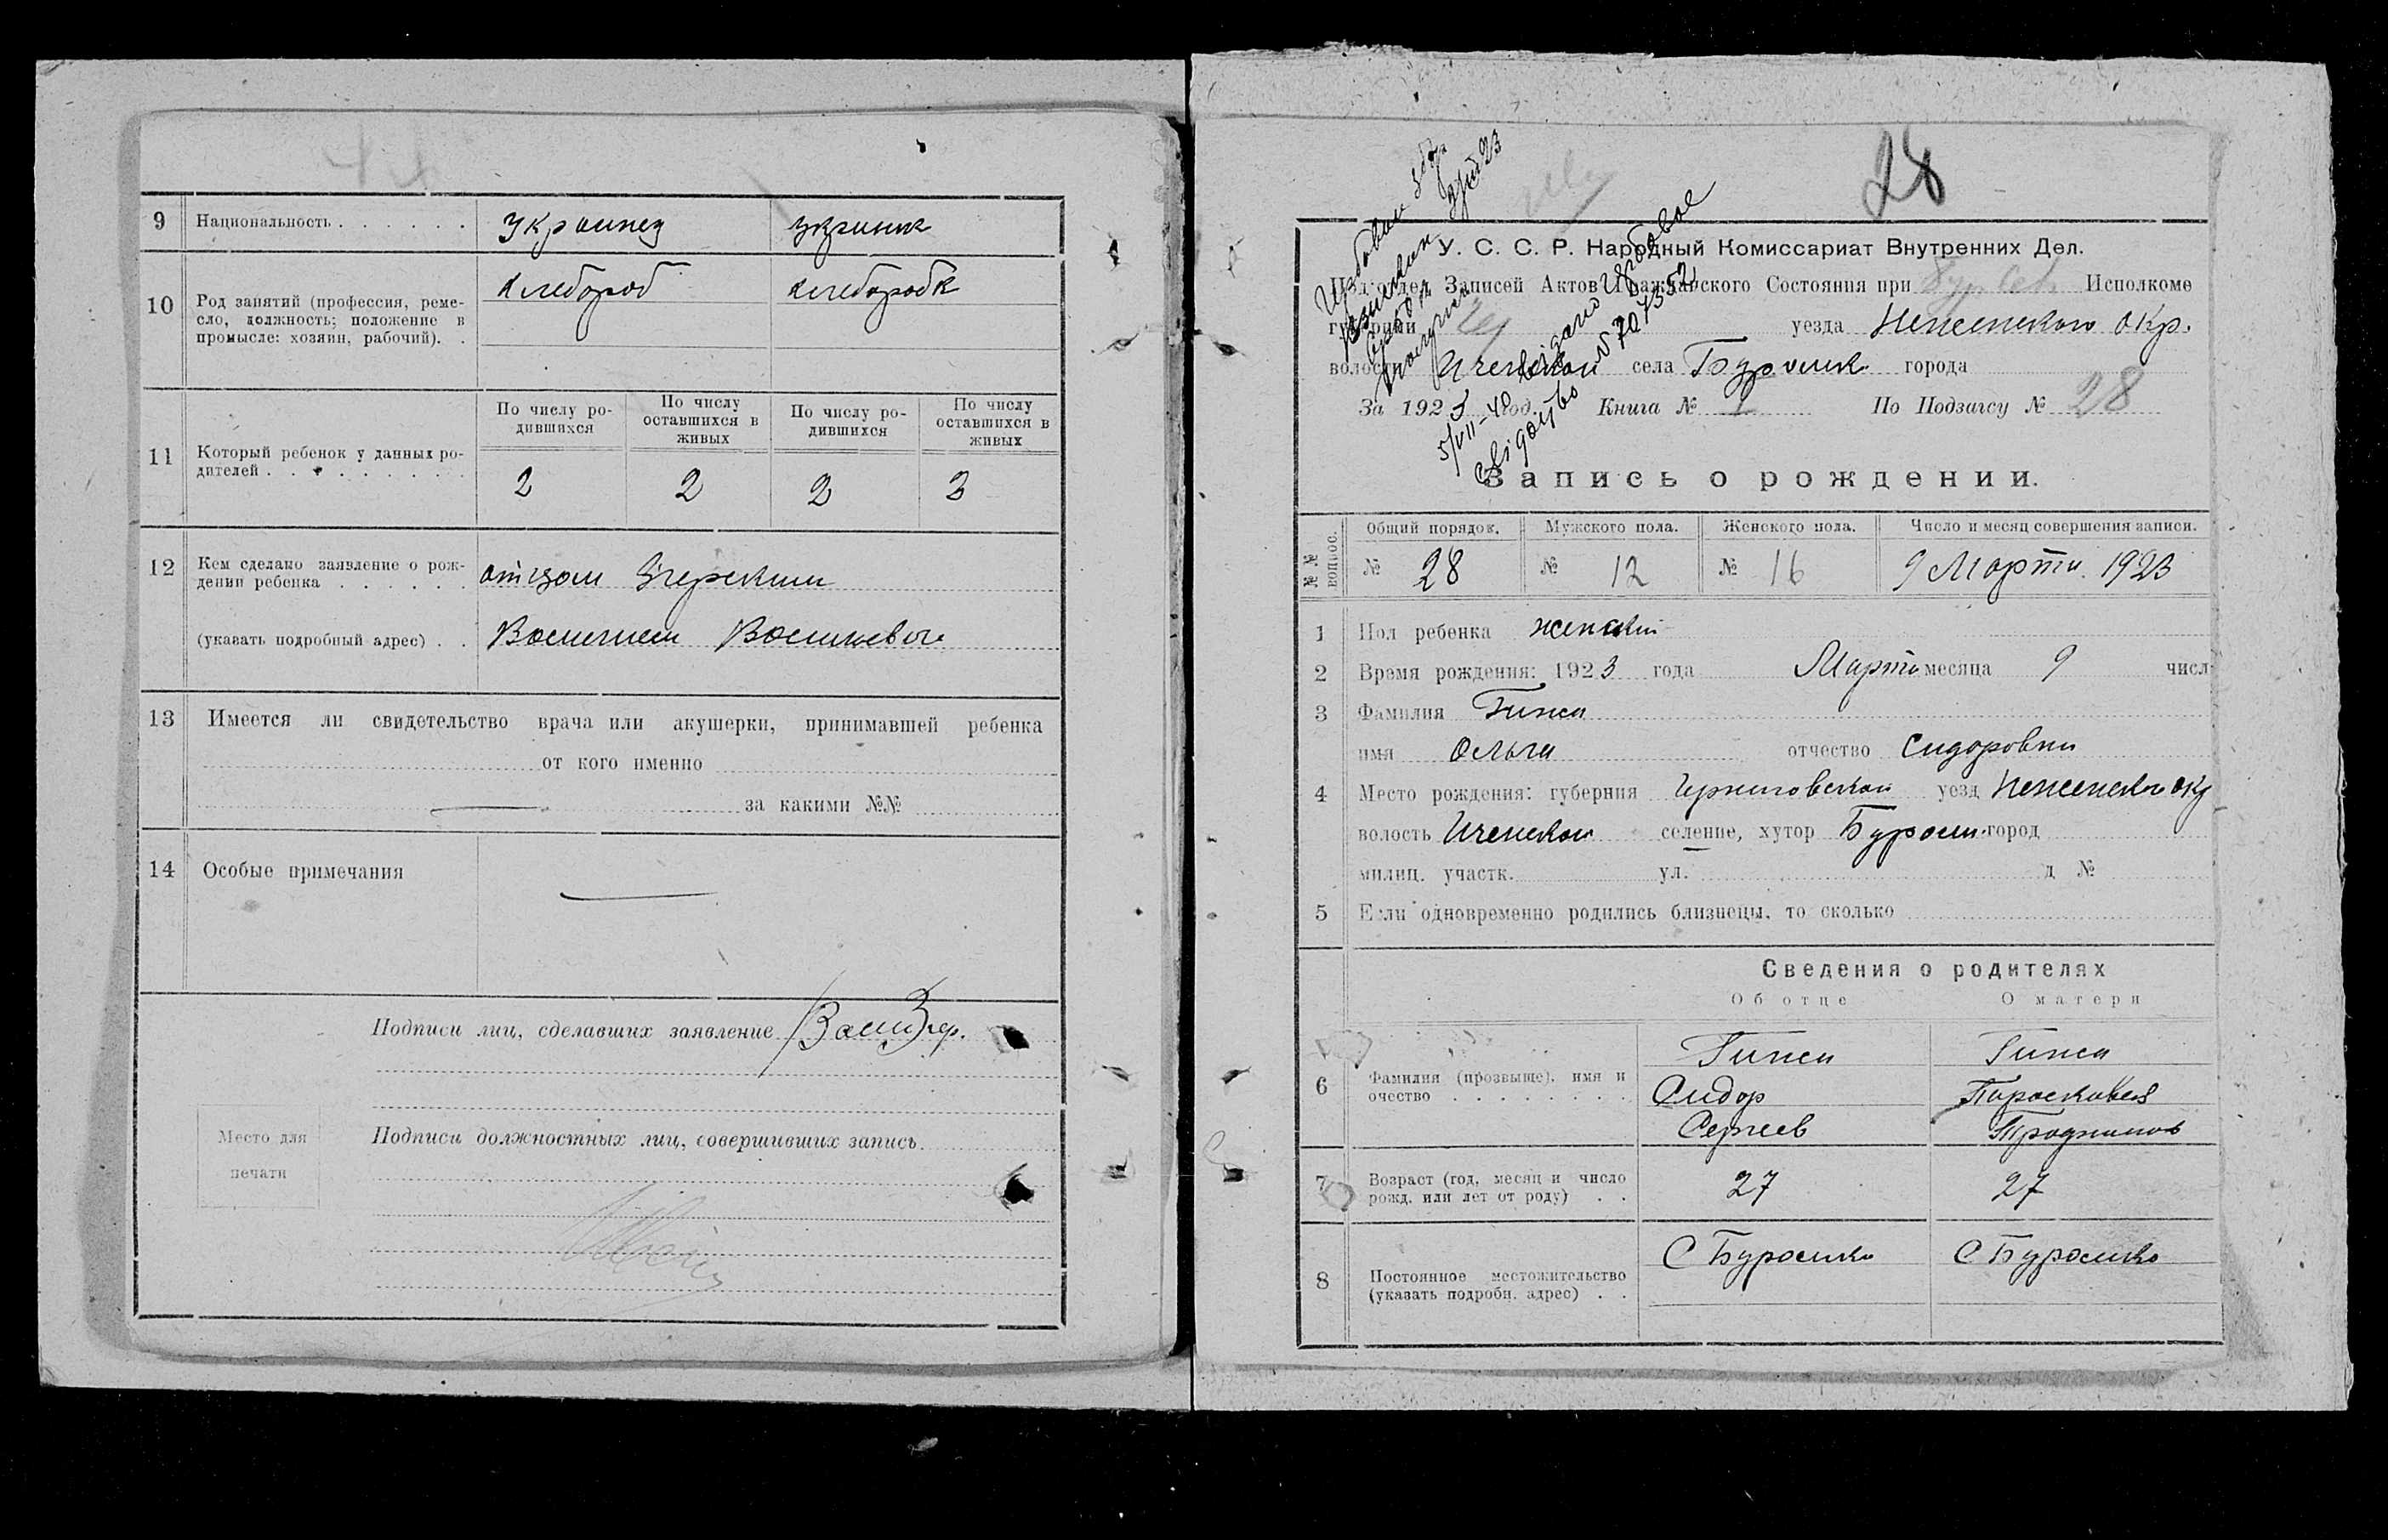 9 Национальность . . . . . . Украинец украинк
10 Род занятий (профессия, реме-
сло, должность; положение в
промысле: хозяин, рабочий). .
хлебороб хлеборобк
11 Который ребенок у данных ро-
дителей . . . . . . . .
По числу ро-
дившихся
По числу
оставшихся в
живых
По числу ро-
дившихся
По числу
оставшихся в
живых
2 2 2 2
12 Кем сделано заявление о рож-
дении ребенка . . . . . . отцом
(указать подробный адрес) . .
13 Имеется ли свидетельство врача или акушерки, принимавшей ребенка
от кого именно
за какими №№
14 Особые примечания
Подписи лиц, сделавших заявление
Подписи должностных лиц, совершивших запись
Место для
печати
28
У. С. С. Р. Народный Комиссариат Внутренних Дел.
Подотдел Записей Актов Гражданского Состояния при Исполкоме
губернии уезда Неженского окр.
волости Иченской села города
За 1923 год. Книга № 1 По Подзагсу № 28
5/VII-40
свідоцтво
Запись о рождении.
№№ вопрос.
Общий порядок. Мужского пола. Женского пола. Число и месяц совершения записи.
№ 28 № 12 № 16 9 Марта 1923
1 Пол ребенка женский
2 Время рождения: 1923 года Марта месяца 9 числ
3 Фамилия Гижа
имя Ольга отчество Сидоровна
4 Место рождения: губерния Черниговской уезд Неженского окр
волость Иченской селение, хутор город
милиц. участк. ул. д №
5 Если одновременно родились близнецы, то сколько
Сведения о родителях
Об отце О матери
6 Фамилия (прозвище), имя и
очество . . . . . . . .
Гижа Гижа
Сидор Параскивея
Сергеев
7 Возраст (год, месяц и число
рожд. или лет от роду) . .
27 27
8 Постоянное местожительство
(указать подробн. адрес) . .